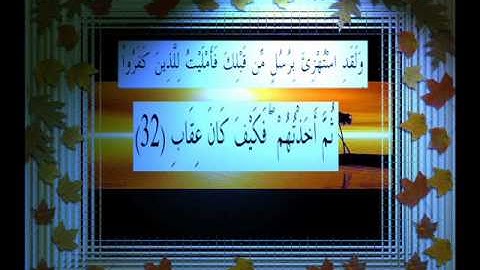 وَلَقَدِ اسْتُهْزِئَ بِرُسُلٍ مِّن قَبْلِكَ فَأَمْلَيْتُ لِلَّذِينَ كَفَرُوا
ثُمَّ أَخَذْتُهُمْ ۖ فَكَيْفَ كَانَ عِقَابِ (32)